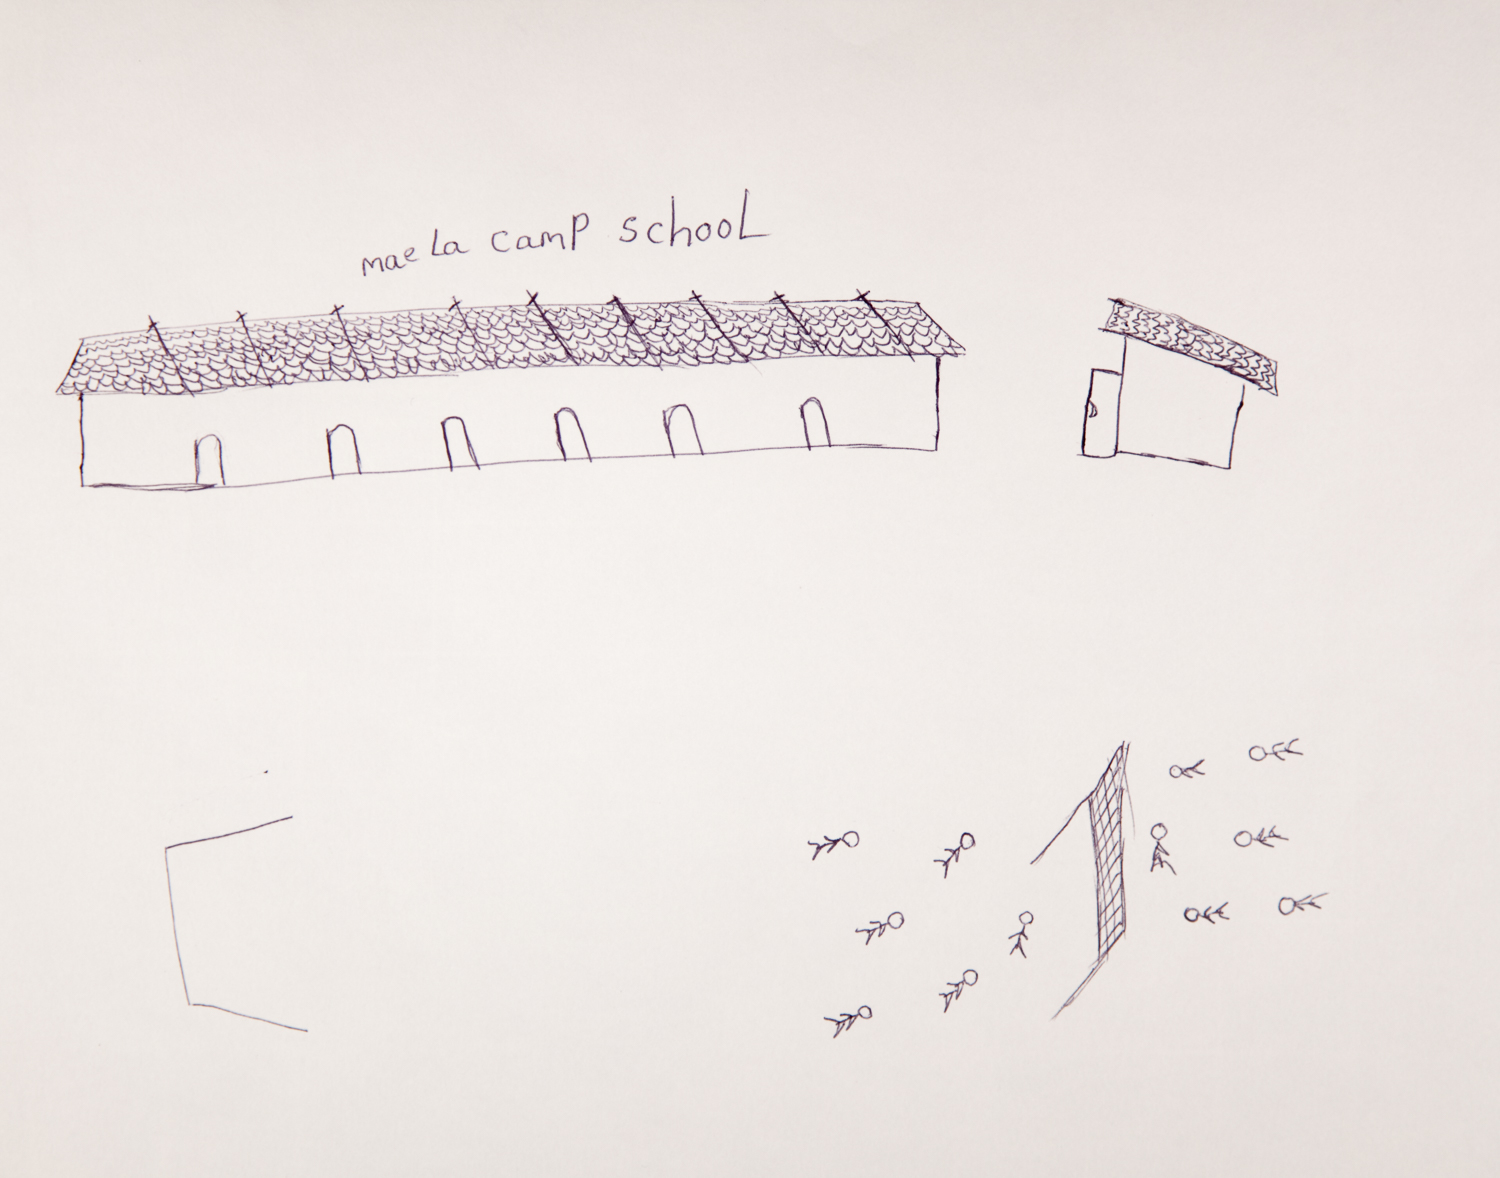 mae La camp school